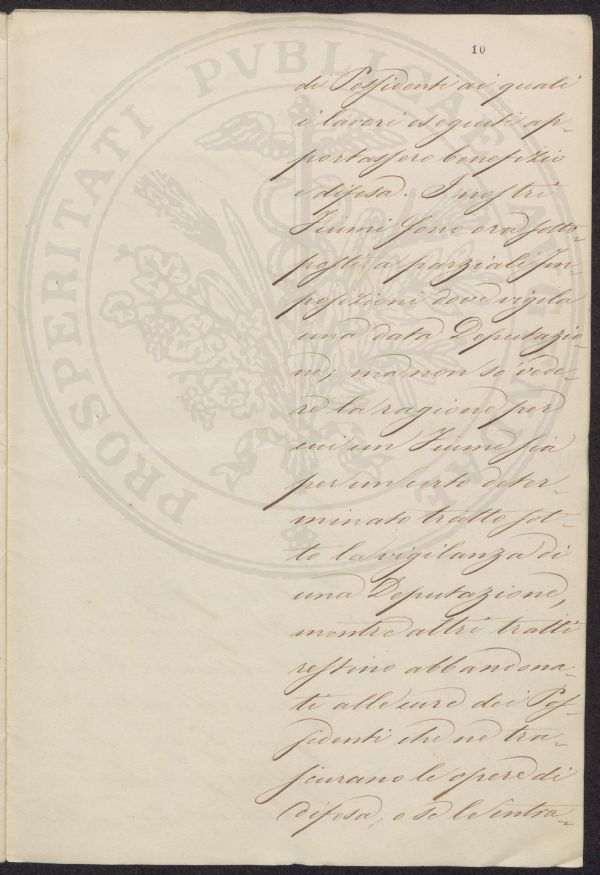 10
di Possidenti ai quali
i lavori eseguiti ap-
portassero benefizio
e difesa. I nostri
Fiumi sono ora sotto-
posti a parziali Im-
posizioni dove vigila
una data Deputazio-
ne; ma non so vede-
re la ragione per
cui un Fiume sia
per un certo deter-
minato tratto sot-
to la vigilanza di
una Deputazione,
mentre altri tratti
restino abbandona-
ti alle cure dei Pos-
sidenti che ne tra-
scurano le opere di
difesa, o se le intra-
PROSPERITATI PVBLICAE